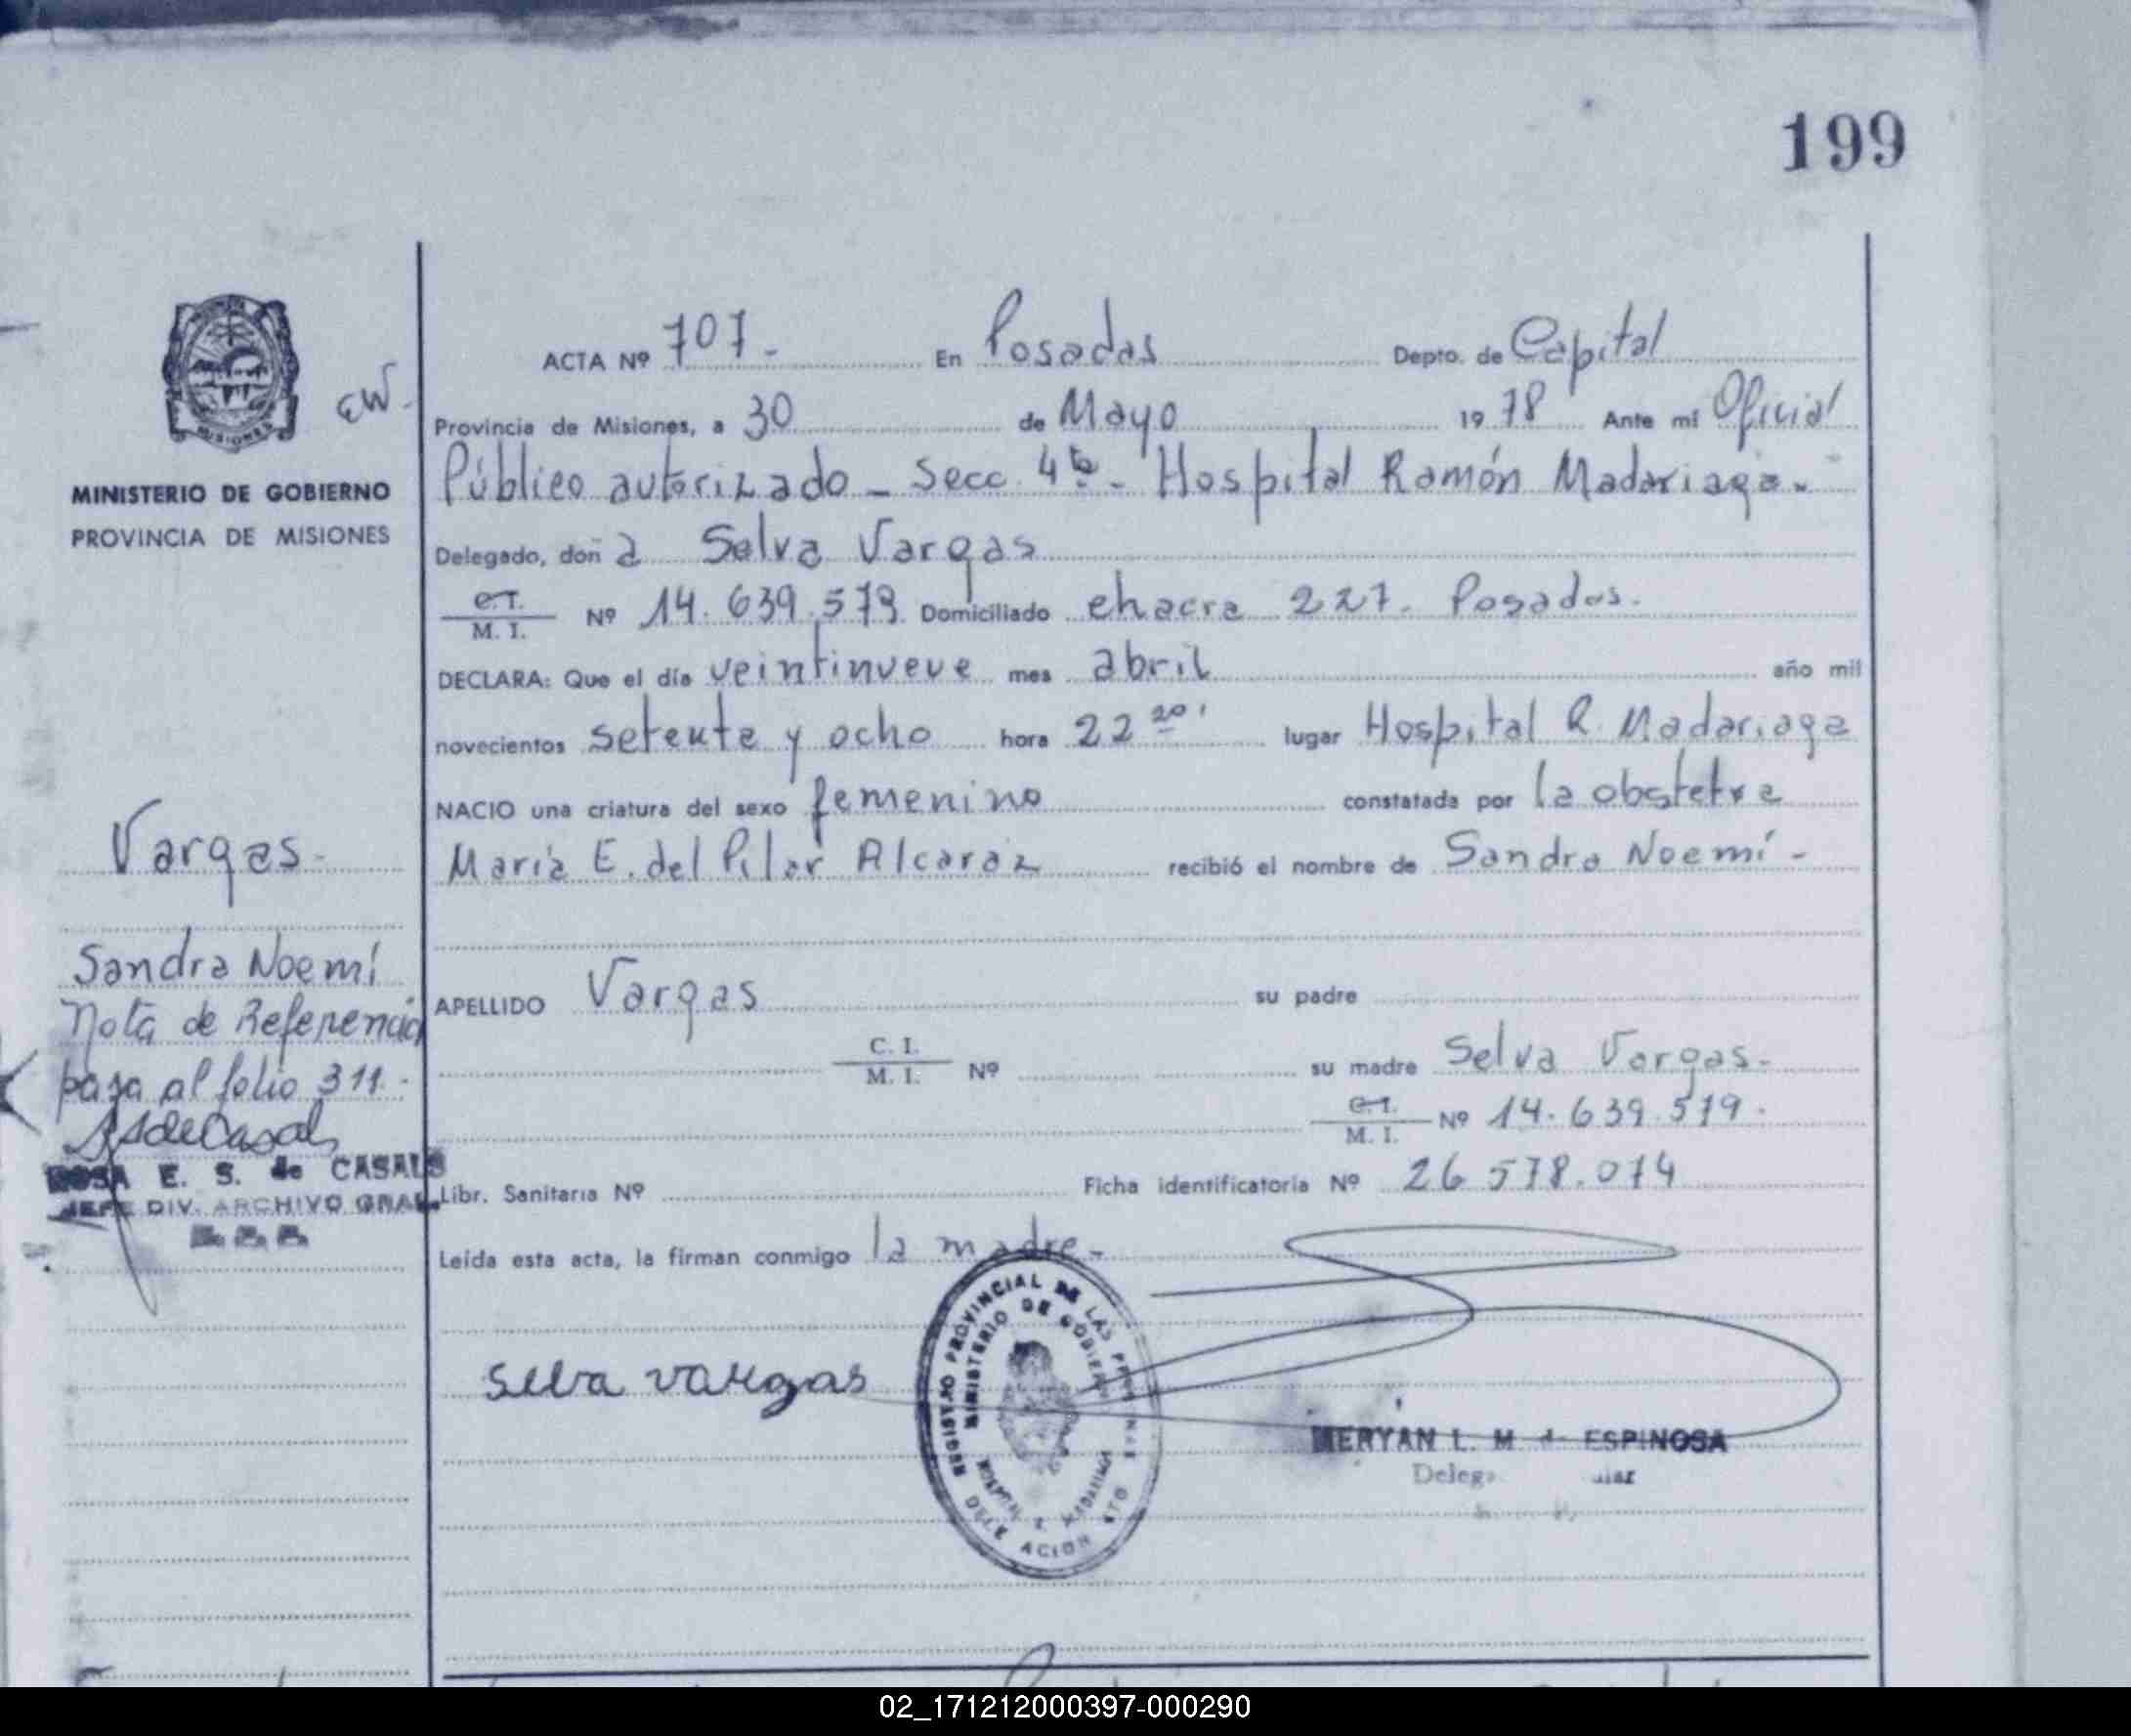 199
ACTA Nº 707.- En Posadas Depto. de Capital
EW.
Provincia de Misiones, a 30 de Mayo 1978 Ante mí Oficial
MINISTERIO DE GOBIERNO
PROVINCIA DE MISIONES
Público autorizado - Secc. 4ta - Hospital Ramón Madariaga.-
Delegado, doña Selva Vargas
C.I. M. I. Nº 14.639.579 Domiciliado chacra 227. Posadas.
DECLARA: Que el día veintinueve mes abril año mil
novecientos setenta y ocho hora 22 20' lugar Hospital R. Madariaga
NACIO una criatura del sexo femenino constatada por la obstetra
María E. del Pilar Alcaráz recibió el nombre de Sandra Noemí -
APELLIDO Vargas su padre
C. I. M. I. Nº su madre Selva Vargas.-
C.I. M. I. Nº 14.639.579.
Libr. Sanitaria Nº Ficha identificatoria Nº 26 578.074
Leída esta acta, la firman conmigo la madre.-
Vargas.-
Sandra Noemí
Nota de Referencia
pasa al folio 311.-
ROSA E. S. de CASALS
JEFE DIV. ARCHIVO GRAL.
selva vargas
REGISTRO PROVINCIAL DE LAS
MINISTERIO DE GOBIERNO
MERYAN L. M. de ESPINOSA
02_171212000397-000290